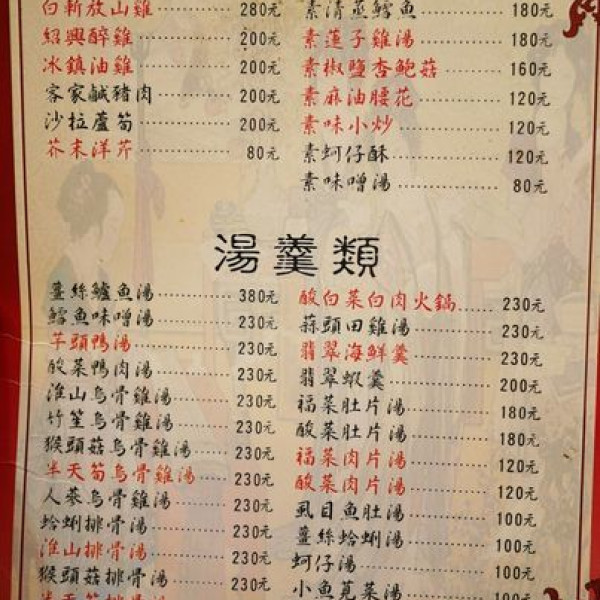 白斬放山雞 280元
紹興醉雞 200元
冰鎮油雞 200元
客家鹹豬肉 200元
沙拉蘆筍 200元
芥末洋芹 80元
素清蒸鱈魚 180元
素蓮子雞湯 180元
素椒鹽杏鮑菇 160元
素麻油腰花 120元
素味小炒 120元
素蚵仔酥 120元
素味噌湯 80元
湯羹類
薑絲鱸魚湯 380元
鱈魚味噌湯 230元
芋頭鴨湯 230元
酸菜鴨肉湯 230元
淮山烏骨雞湯 230元
竹笙烏骨雞湯 230元
猴頭菇烏骨雞湯 230元
半天筍烏骨雞湯 230元
人蔘烏骨雞湯 230元
蛤蜊排骨湯 230元
淮山排骨湯 230元
猴頭菇排骨湯 230元
半天筍排骨湯
酸白菜白肉火鍋 230元
蒜頭田雞湯 230元
翡翠海鮮羹 230元
翡翠蝦羹 200元
福菜肚片湯 180元
酸菜肚片湯 180元
福菜肉片湯 120元
酸菜肉片湯 120元
虱目魚肚湯 100元
薑絲蛤蜊湯 100元
蚵仔湯 100元
小魚莧菜湯 100元